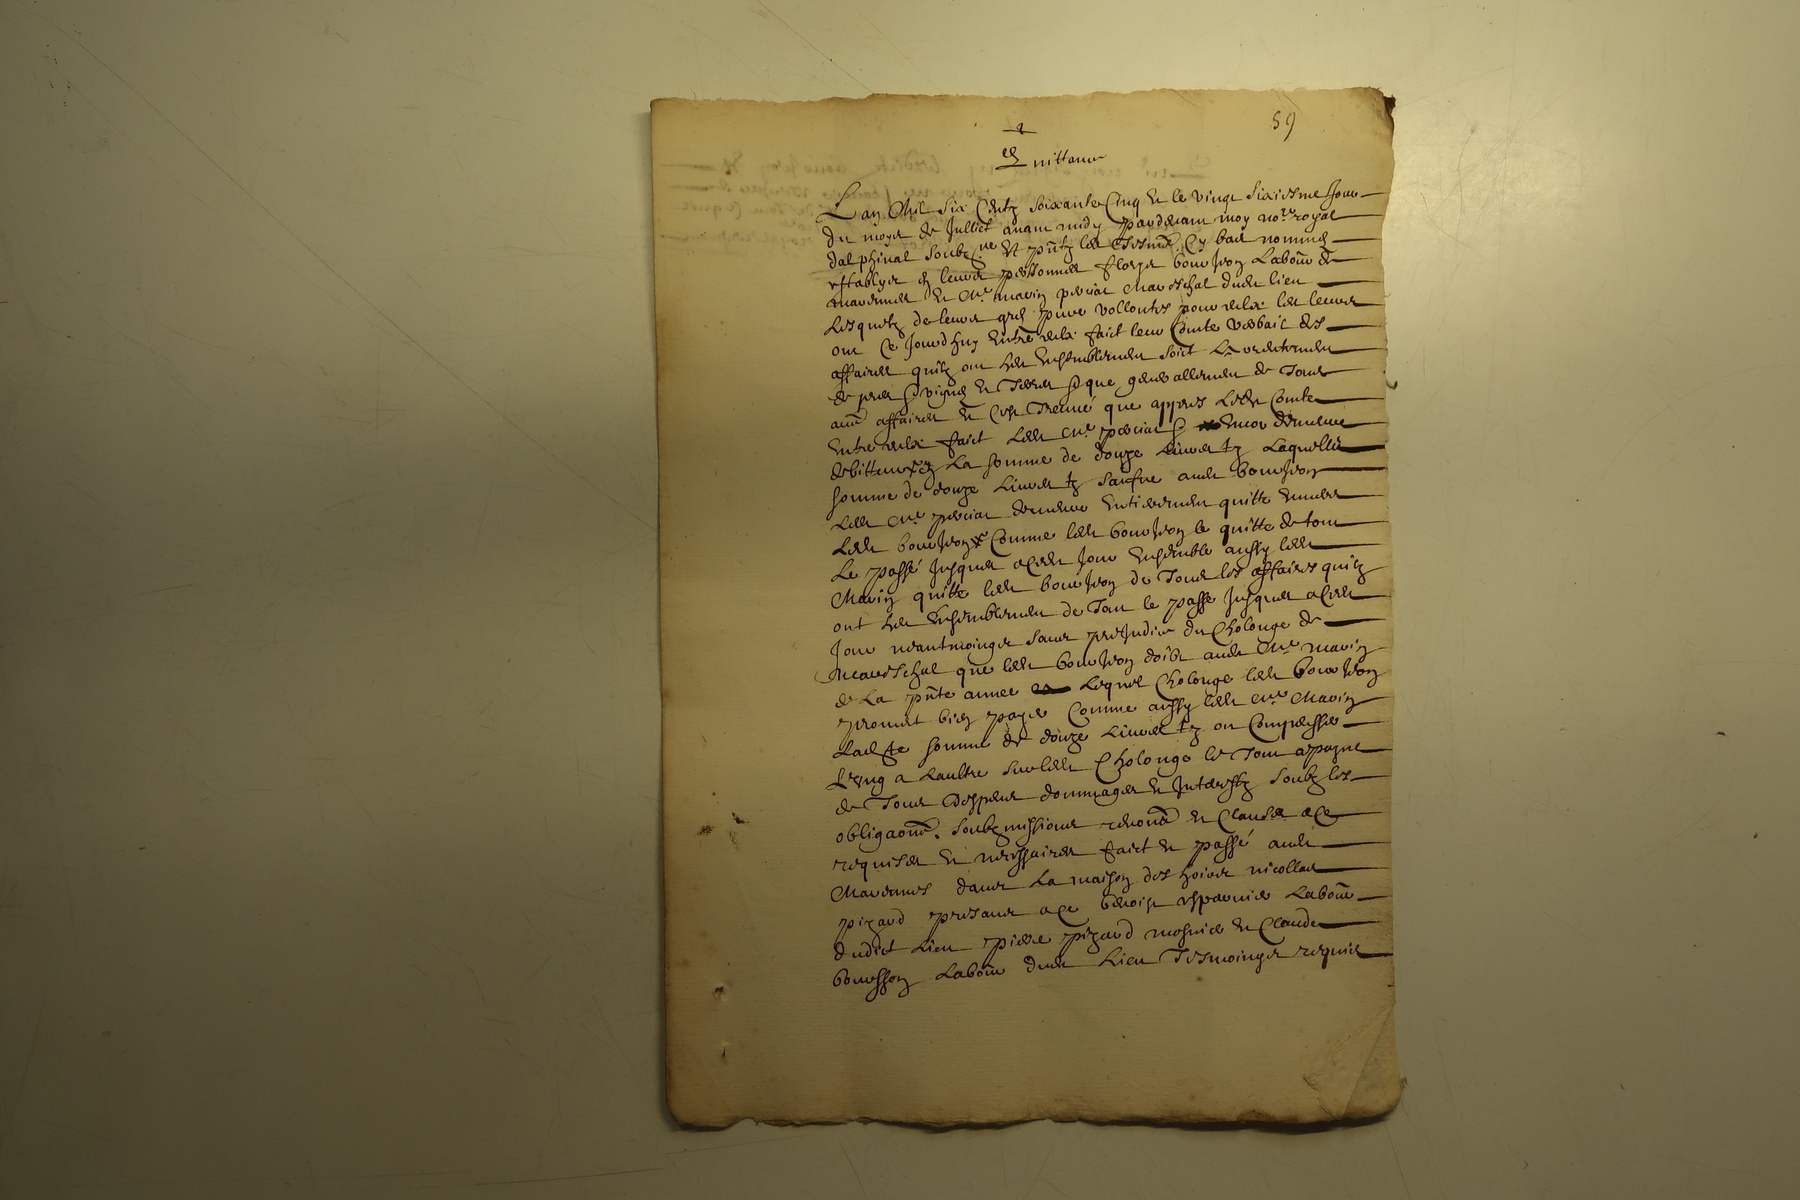 59
Quittance
Lan Mil Six Centz Soixante Cinq Et le vingt Sixiesme Jour
du moys de Juillet avant midy pardevant moy no.re royal
dalphinal soubz.ne Et pñtz les tesmo. Cy bas nommes
establys en leurs personnes bourjon Labour de
marennes Et Me marin perciat Mareschal dudt lieu
Lesquelz de leurs gres pure vollontes pour eulx les leurs
ont Ce Jourdhuy Entre eulx faict leur Compte verbail des
affaires quilz ont Heu Ensemblement soict
de pres vignes Et Terres que generallement de Tous
aues affaires Et Cest Treuvé que appres Ledt Compte
Entre eulx faict Ledt Me perciat Encor demeure
debitteur La somme de douze Livres tz Laquelle
somme de douze Livres tz saufve audt bourjon
Ledt Me perciat demeure Entierement quitte Envers
Ledt bourjon Comme ledt bourjon le quitte de tout
Le passé Jusques aCedt Jour Ensemble aussy ledt
Marin quitte ledt bourjon de Tous les affaires quilz
ont Heu Ensemblement de Tout le passe Jusques aCedt
Jour neantmoingz sans prejudice du Cholonge de
Mareschal que ledt bourjon doibt audt Me marin
de La pñte annee Lequel Cholonge ledt bourjon
promet bien payer Comme aussy ledt Me Marin
Ladte somme de douze Livres tz ou Compenser
Lung a Laultre surledt Cholonge le Tout apayne
de Tous despens dommages Et Interestz Soubz les
obligaons. Soubzmissions renons Et Clauses aCe
requises Et necessaires faict Et passé audt
Marennes dans La maison des hoirs nicollas
pizard presans aCe benoist Labour
dudict Lieu pierre pizard Et Claude
bouesson Labour dudt Lieu Tesmoingz requis